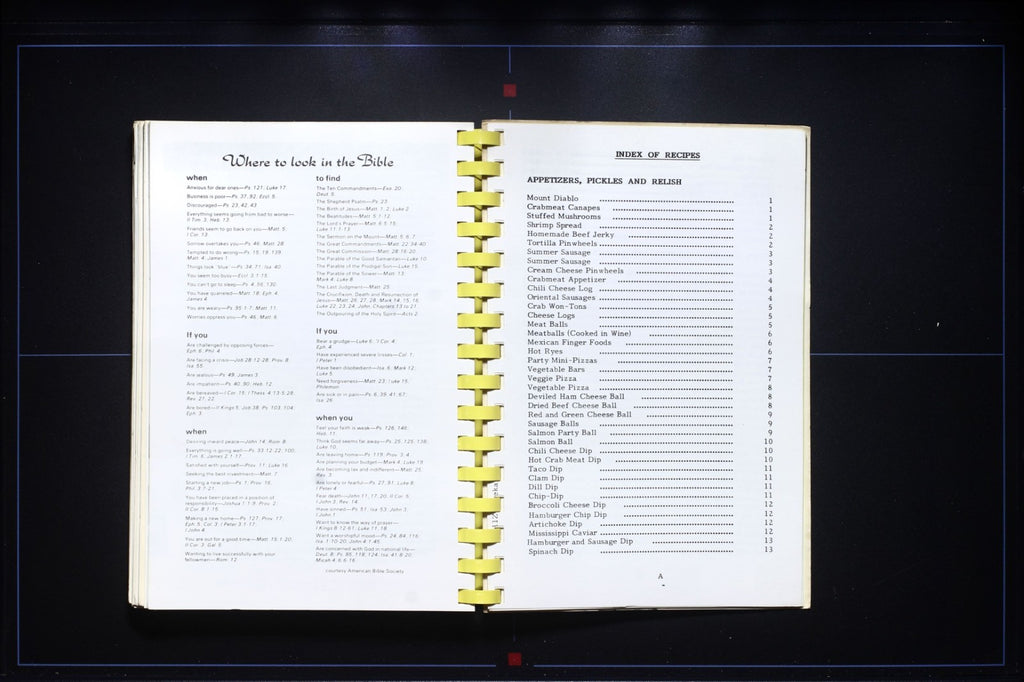 Where to look in the Bible
when
Anxious for dear ones—Ps. 121; Luke 17.
Business is poor—Ps. 37, 92; Eccl. 5.
Discouraged—Ps. 23, 42, 43.
Everything seems going from bad to worse—
II Tim. 3; Heb. 13.
Friends seem to go back on you—Matt. 5;
I Cor. 13.
Sorrow overtakes you—Ps. 46; Matt. 28.
Tempted to do wrong—Ps. 15, 19, 139;
Matt. 4; James 1.
Things look "blue"—Ps. 34, 71; Isa. 40.
You seem too busy—Eccl. 3:1-15.
You can't go to sleep—Ps. 4, 56, 130.
You have quarreled—Matt. 18; Eph. 4;
James 4.
You are weary—Ps. 95:1-7; Matt. 11.
Worries oppress you—Ps. 46; Matt. 6.
If you
Are challenged by opposing forces—
Eph. 6; Phil. 4.
Are facing a crisis—Job 28:12-28; Prov. 8;
Isa. 55.
Are jealous—Ps. 49; James 3.
Are impatient—Ps. 40, 90; Heb. 12.
Are bereaved—I Cor. 15; I Thess. 4:13-5:28;
Rev. 21, 22.
Are bored—II Kings 5; Job 38; Ps. 103, 104;
Eph. 3.
when
Desiring inward peace—John 14; Rom. 8.
Everything is going well—Ps. 33:12-22; 100;
I Tim. 6; James 2:1-17.
Satisfied with yourself—Prov. 11; Luke 16.
Seeking the best investment—Matt. 7.
Starting a new job—Ps. 1; Prov. 16;
Phil. 3:7-21.
You have been placed in a position of
responsibility—Joshua 1:1-9; Prov. 2;
II Cor. 8:1-15.
Making a new home—Ps. 127; Prov. 17;
Eph. 5; Col. 3; I Peter 3:1-17;
I John 4.
You are out for a good time—Matt. 15:1-20;
II Cor. 3; Gal. 5.
Wanting to live successfully with your
fellowmen—Rom. 12.
to find
The Ten Commandments—Exo. 20;
Deut. 5.
The Shepherd Psalm—Ps. 23.
The Birth of Jesus—Matt. 1, 2; Luke 2.
The Beatitudes—Matt. 5:1-12.
The Lord's Prayer—Matt. 6:5-15;
Luke 11:1-13.
The Sermon on the Mount—Matt. 5, 6, 7.
The Great Commandments—Matt. 22:34-40.
The Great Commission—Matt. 28:16-20.
The Parable of the Good Samaritan—Luke 10.
The Parable of the Prodigal Son—Luke 15.
The Parable of the Sower—Matt. 13;
Mark 4; Luke 8.
The Last Judgment—Matt. 25.
The Crucifixion, Death and Resurrection of
Jesus—Matt. 26, 27, 28; Mark 14, 15, 16;
Luke 22, 23, 24; John, Chapters 13 to 21.
The Outpouring of the Holy Spirit—Acts 2.
If you
Bear a grudge—Luke 6; II Cor. 4;
Eph. 4.
Have experienced severe losses—Col. 1;
I Peter 1.
Have been disobedient—Isa. 6; Mark 12;
Luke 5.
Need forgiveness—Matt. 23; Luke 15;
Philemon.
Are sick or in pain—Ps. 6, 39, 41, 67;
Isa. 26.
when you
Feel your faith is weak—Ps. 126, 146;
Heb. 11.
Think God seems far away—Ps. 25, 125, 138;
Luke 10.
Are leaving home—Ps. 119; Prov. 3, 4.
Are planning your budget—Mark 4; Luke 19.
Are becoming lax and indifferent—Matt. 25;
Rev. 3.
Are lonely or fearful—Ps. 27, 91; Luke 8;
I Peter 4.
Fear death—John 11, 17, 20; II Cor. 5;
I John 3; Rev. 14.
Have sinned—Ps. 51; Isa. 53; John 3;
I John 1.
Want to know the way of prayer—
I Kings 8:12-61; Luke 11, 18.
Want a worshipful mood—Ps. 24, 84, 116;
Isa. 1:10-20; John 4:1-45.
Are concerned with God in national life—
Deut. 8; Ps. 85, 118, 124; Isa. 41:8-20;
Micah 4, 6:6-16.
courtesy American Bible Society
INDEX OF RECIPES
APPETIZERS, PICKLES AND RELISH
Mount Diablo 1
Crabmeat Canapes 1
Stuffed Mushrooms 1
Shrimp Spread 2
Homemade Beef Jerky 2
Tortilla Pinwheels 2
Summer Sausage 3
Summer Sausage 3
Cream Cheese Pinwheels 3
Crabmeat Appetizer 4
Chili Cheese Log 4
Oriental Sausages 4
Crab Won-Tons 5
Cheese Logs 5
Meat Balls 5
Meatballs (Cooked in Wine) 6
Mexican Finger Foods 6
Hot Ryes 6
Party Mini-Pizzas 7
Vegetable Bars 7
Veggie Pizza 7
Vegetable Pizza 8
Deviled Ham Cheese Ball 8
Dried Beef Cheese Ball 8
Red and Green Cheese Ball 9
Sausage Balls 9
Salmon Party Ball 9
Salmon Ball 10
Chili Cheese Dip 10
Hot Crab Meat Dip 10
Taco Dip 11
Clam Dip 11
Dill Dip 11
Chip-Dip 11
Broccoli Cheese Dip 12
Hamburger Chip Dip 12
Artichoke Dip 12
Mississippi Caviar 12
Hamburger and Sausage Dip 13
Spinach Dip 13
A